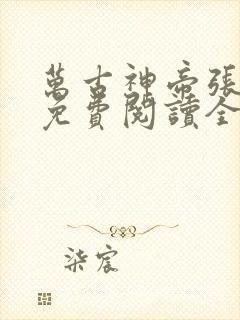 萬古神帝張
免費閱讀全
柒宸